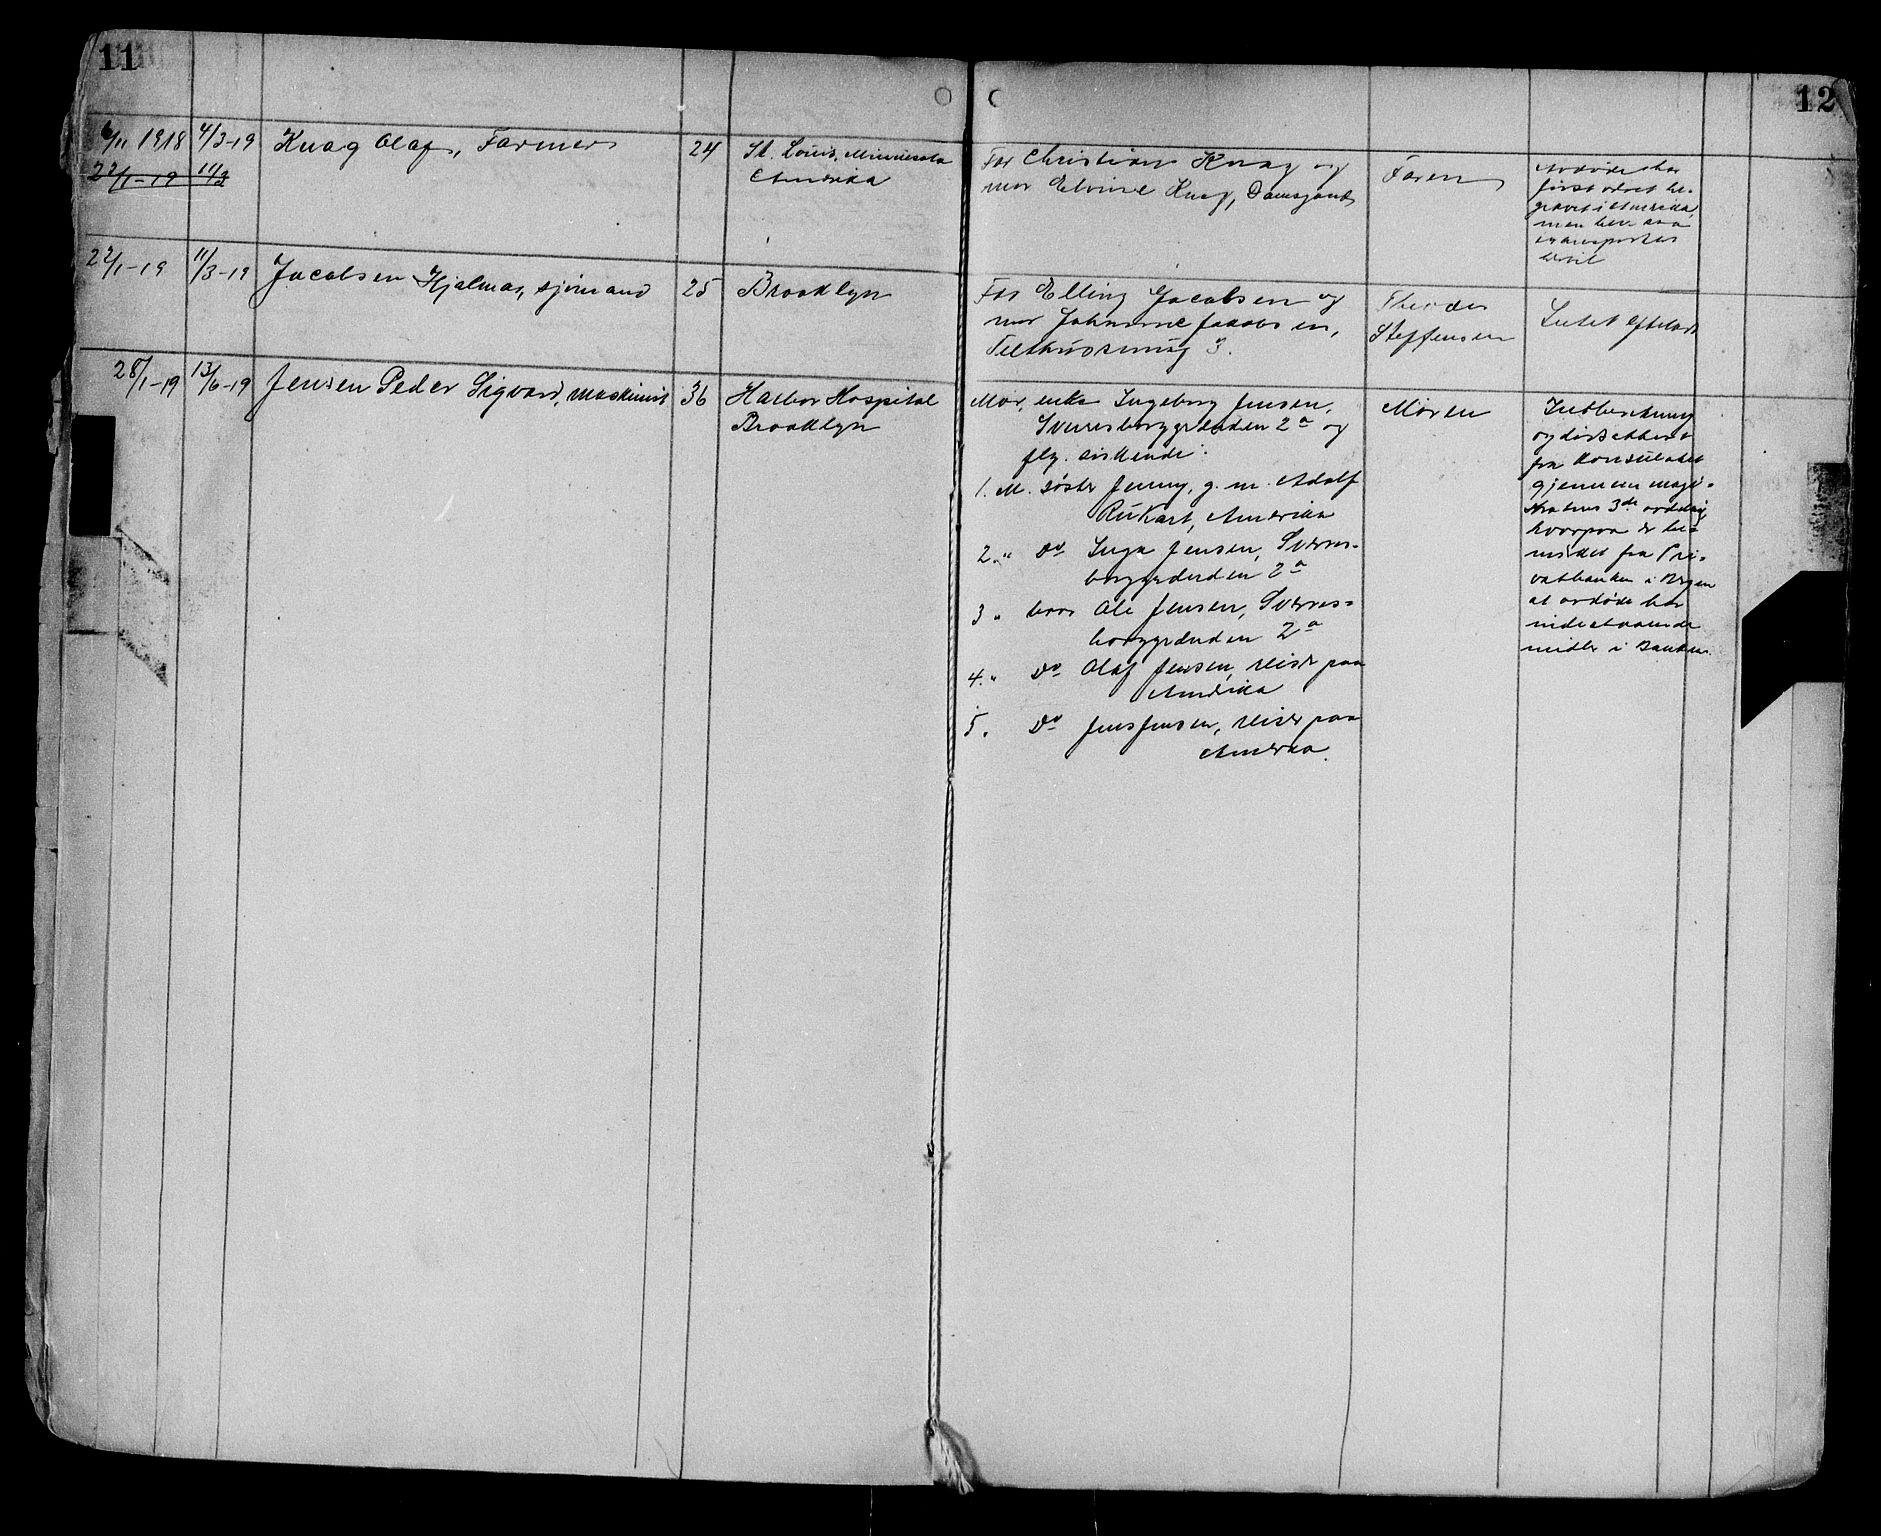 11
12
6/11 1918 4/3-19 Knag Olaf, Farmer 24 St. Louis, Minnesota
Amerika
22/1-19 11/3
Far Christian Knag og
mor Elvine Knag, Damsgaard
Faren
Avdøde har
først været be-
gravet i Amerika,
men blev saa
transportert
hertil
22/1-19 11/3-19 Jacobsen Hjalmar, sjømand 25 Brooklyn
Far Elling Jacobsen og
mor Jakobsen,
3.
Steffensen
Intet efterladt
28/1-19 13/6-19 Jensen Peder Sigvard, maskinist 36 Harbor Hospital
Brooklyn
Mor, enke Ingeborg Jensen,
Sverresborggrenden 2a og
flg. søskende:
1. M. søster Jenny, g. m. Adolf
Rikart, Amerika
2. " do Inga Jensen, Sverres-
borggrenden 2a
3 " bror Ole Jensen, Sverres-
borggrenden 2a
4. " do Olaf Jensen, reiser paa
Amerika
5. do Jens Jensen, reiser paa
Amerika.
Moren
Indberetning
og
fra Konsulatet
gjennem magi-
stratens 3de avdeling
hvorpaa er be-
fra Pri-
vatbanken i Bergen
at avdøde har
indestaaende
midler i Banken.